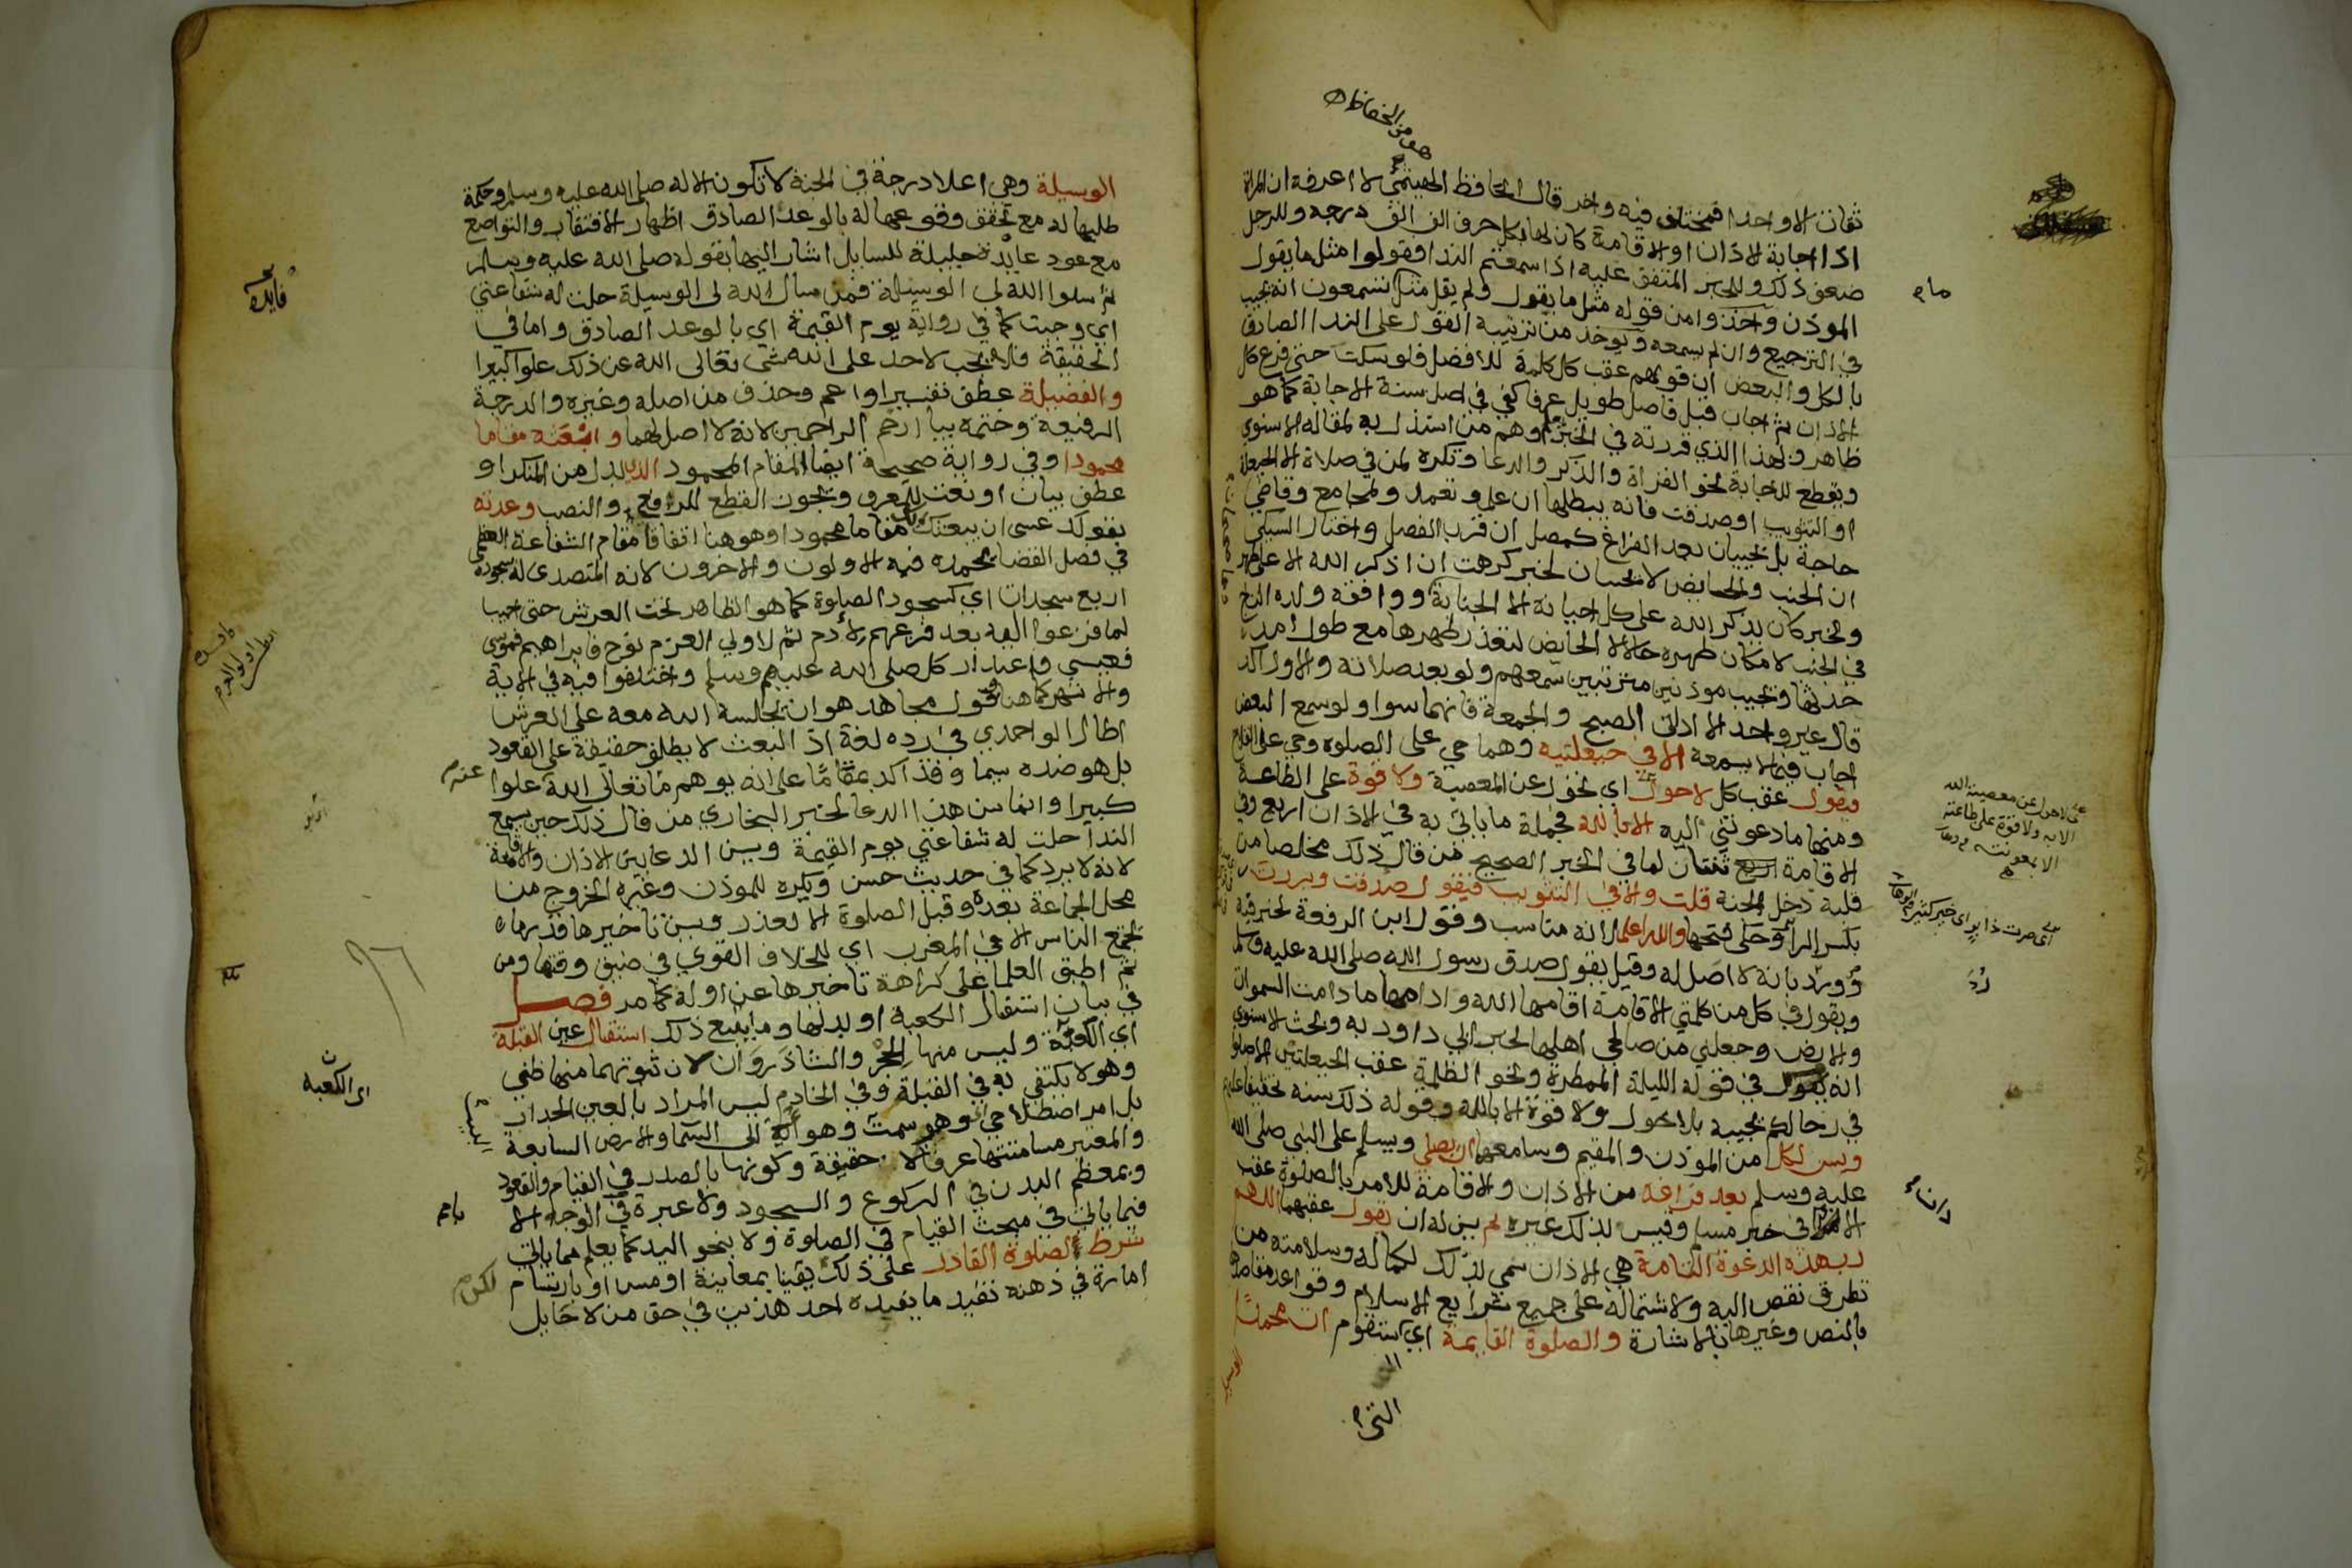 ثقات الا واحدا فمختلف فيه واخر قال الحافظ الهيتمي لا اعرفه ان المراة
اذا اجابة الاذان او الاقامة كان لها بكل حرف الف الف درجة وللرجل
ضعف ذلك وللخبر المتفق عليه اذا سمعتم الندا فقولوا مثل ما يقول
الموذن واخذوا من قوله مثل ما يقول ولم يقل مثل تسمعون انه يجيب
في الترجيع وان لم يسمعه ويوخذ من ترتيبه القول على الندا الصادق
بالكل والبعض ان قولهم عقب كل كلمة للافضل فلو سكت حتى فرغ كل
الاذان ثم اجاب قبل فاصل طويل عرفا كفي في اصل سنة الاجابة كما هو
ظاهر وبهذا الذي قررته في الخبر وهم من استدل به لمقالة الاسنوي
ويقطع للاجابة نحو القراة والذكر والدعا وتكره لمن في صلاة الا الحيعلة
او التثويب او صدقت فانه يبطلها ان علم وتعمد ولمجامع وقاضي
حاجة بل يجيبان بعد الفراغ كمصل ان قرب الفصل واختار السبكي
ان الجنب والحايض لا يجيبان لخبر كرهت ان اذكر الله الا على طهر
ولخبر كان يذكر الله على كل احيانه الا الجنابة ووافقه ولده التاج
في الجنب لامكان طهره حالا لا الحايض لتعذر طهرها مع طول امد
حدثها ويجيب موذنين مترتبين سمعهم ولو بعد صلاته والاول اكد
قال غير واحد الا اذاني الصبح والجمعة فانهما سوا ولو سمع البعض
اجاب فيما لا يسمعه الا في حيعلتيه وهما حي على الصلوة وحي على الفلاح
فيقول عقب كل لا حول اي تحول عن المعصية ولا قوة على الطاعة
ومنها ما دعوتني اليه الا بالله فجملة ما ياتي به في الاذان اربع وفي
الاقامة ثنتان لما في الخبر الصحيح من قال ذلك مخلصا من
قلبه دخل الجنة قلت والا في التثويب فيقول صدقت وبررت
بكسر الرا وحكي فتحها والله اعلم لانه مناسب وقول ابن الرفعة لخبر فيه
ورد بانه لا اصل له وقيل يقول صدق رسول الله صلى الله عليه وسلم
ويقول في كل من كلمتي الاقامة اقامها الله وادامها ما دامت السموات
والارض وجعلني من صالحي اهلها لخبر ابي داود به وبحث الاسنوي
انه يقول في قوله الليلة الممطرة ونحو الظلمة عقب الحيعلتين الا صلوا
في رحالكم يجيبه بلا حول ولا قوة الا بالله وقوله ذلك سنة
ويسن لكل من الموذن والمقيم وسامعهما ان يصلي ويسلم على النبي صلى الله
عليه وسلم بعد فراغه من الاذان والاقامة للامر بالصلوة عقب
الاذان في خبر مسلم وقيس بذلك غيره ثم يسن له ان يقول عقبهما اللهم
رب هذه الدعوة التامة هي الاذان سمي بذلك لكماله وسلامته من
تطرق نقص اليه ولاشتماله على جميع شرايع الاسلام وقواعد مقاصدها
بالنص وغيرها بالاشارة والصلوة القايمة اي ستقوم ات محمدا
الوسيلة
على لا حول عن معصية الله
الا به ولا قوة على طاعته
الا بمعونته
اي صرت ذا بر اي خير كثير
الوسيلة وهي اعلا درجة في الجنة لا تكون الا له صلى الله عليه وسلم وحكمة
طلبها له مع تحقق وقوعها له بالوعد الصادق اظهار الافتقار والتواضع
مع عود عايدة جليلة للسايل اشار اليها بقوله صلى الله عليه وسلم
ثم سلوا الله لي الوسيلة فمن سال الله لي الوسيلة حلت له شفاعتي
اي وجبت كما في رواية يوم القيمة اي بالوعد الصادق واما في
الحقيقة فلا يجب لاحد على الله شي تعالى الله عن ذلك علوا كبيرا
والفضيلة عطف تفسير او اعم وحذف من اصله وغيره والدرجة
الرفيعة وختمه بيا ارحم الراحمين لانه لا اصل لهما وابعثه مقاما
محمودا وفي رواية صحيحة ايضا المقام المحمود الذي بدل من المنكر او
عطف بيان او نعت للمعرف ويجوز القطع للرفع والنصب وعدته
بقولك عسى ان يبعثك ربك مقاما محمودا وهو هنا اتفاقا مقام الشفاعة العظمى
في فصل القضا يحمده فيه الاولون والاخرون لانه المتصدي له بسجوده
اربع سجدات اي كسجود الصلوة كما هو الظاهر تحت العرش حتى اجيب
لما فزعوا اليه بعد فزعهم لادم ثم لاولي العزم نوح فابراهيم فموسى
فعيسى واعتذار كل صلى الله عليهم وسلم واختلفوا فيه في الاية
والاشهر كما هنا وقول مجاهد هو ان يجلسه الله معه على العرش
اطال الواحدي في رده لغة اذ البعث لا يطلق حقيقة على القعود
بل هو ضده سيما وقد اكد بمقاما على انه يوهم ما تعالى الله علوا
كبيرا وانما سن هذا الدعا لخبر البخاري من قال ذلك حين يسمع
الندا حلت له شفاعتي يوم القيمة ويسن الدعا بين الاذان والاقامة
لانه لا يرد كما في حديث حسن ويكره للموذن وغيره الخروج من
محل الجماعة بعده وقبل الصلوة الا لعذر ويسن تاخيرها قدر ما
يجتمع الناس الا في المغرب اي للخلاف القوي في ضيق وقتها ومن
ثم اطبق العلما على كراهة تاخيرها عن اوله كما مر فصل
في بيان استقبال الكعبة او بدلها وما يتبع ذلك استقبال عين القبلة
اي الكعبة وليس منها الحجر والشاذروان لان ثبوتهما منها ظني
وهو لا يكتفى به في القبلة وفي الخادم ليس المراد بالعين الجدار
بل امر اصطلاحي اي وهو سمت وهو الى السما والارض السابعة
والمعتبر مسامتتها عرفا لا حقيقة وكونها بالصدر في القيام والقعود
وبمعظم البدن في الركوع والسجود ولا عبرة في الوجه الا
فيما ياتي في مبحث القيام في الصلوة ولا بنحو اليد كما يعلم مما ياتي
شرط لصلوة القادر على ذلك يقينا بمعاينة او مس او بارتسام
امارة في ذهنه تفيد ما يفيده احد هذين في حق من لا حايل
فايدة
اي الكعبة